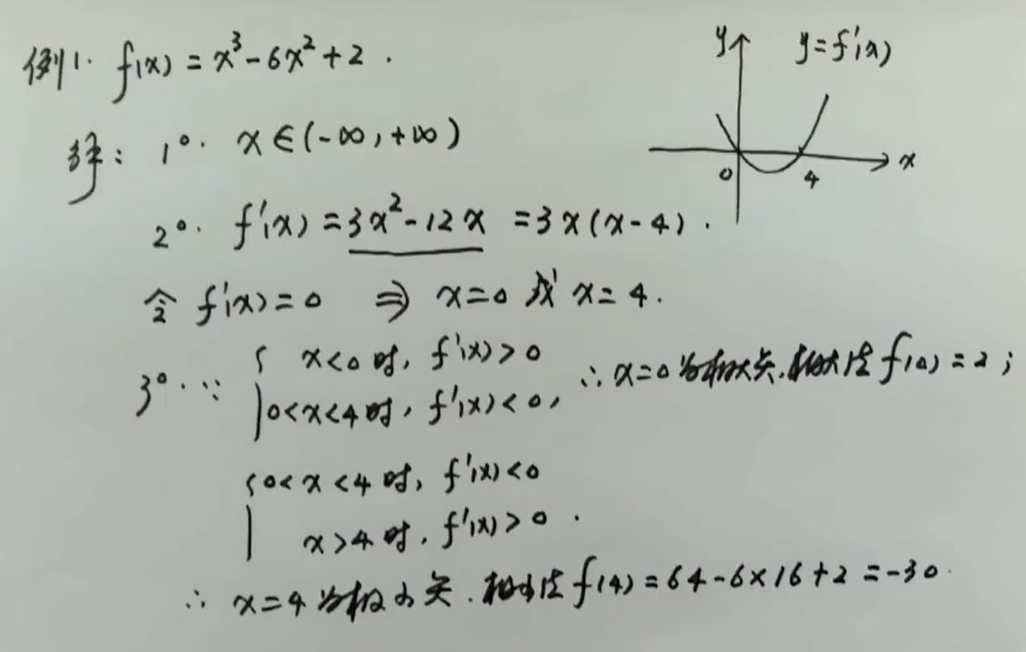 例1. f(x) = x³-6x²+2.
y y=f'(x)
0 4 x
解: 1°. x∈(-∞,+∞)
2°. f'(x) = 3x²-12x = 3x(x-4).
令 f'(x)=0 ⇒ x=0 或 x=4.
3°. ∵ { x<0 时, f'(x)>0
0<x<4 时, f'(x)<0, ∴ x=0 为极大点. 极大值 f(0)=2;
{ 0<x<4 时, f'(x)<0
x>4 时, f'(x)>0.
∴ x=4 为极小点. 极小值 f(4)=64-6×16+2=-30.